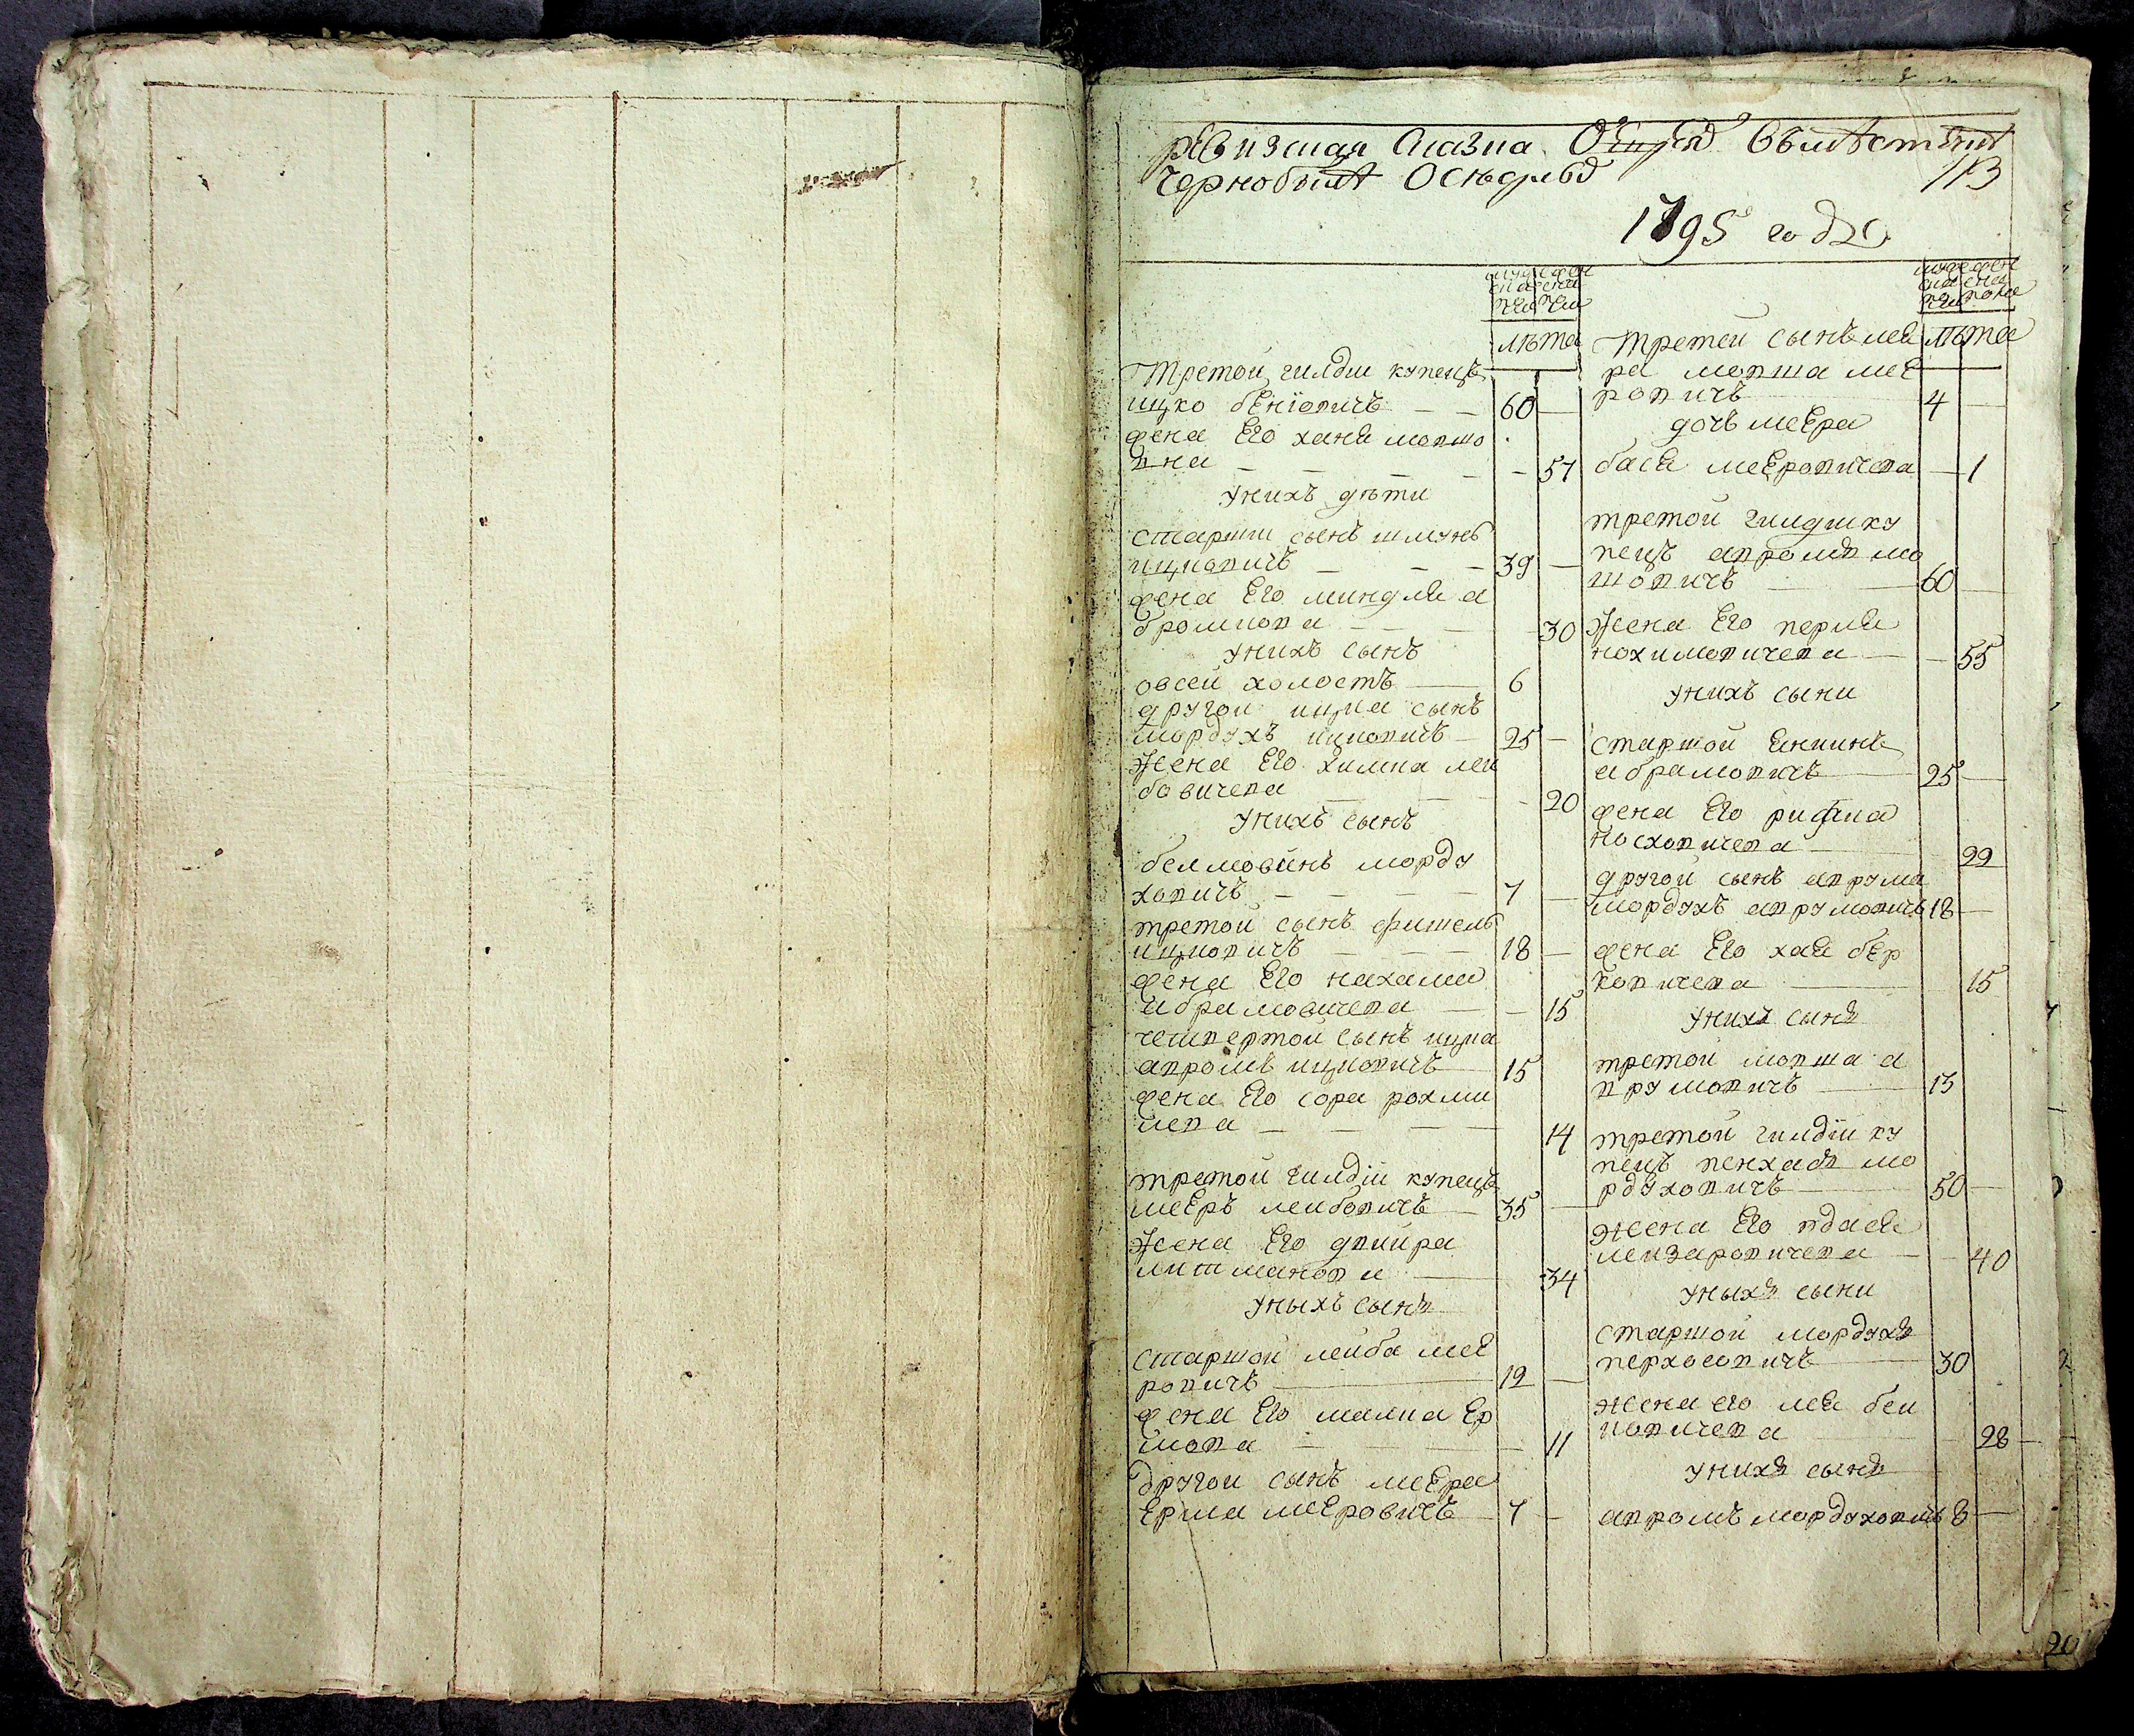 ревизская сказка
чернобыле
113
1795 года
лѣта
Третой гилдии купецъ
ицко бениовичъ 60
жена Его ханя мовшо
вна 57
унихъ дѣти
старши сынъ шмуль
ицковичъ 39
жена Его миндля а
бромкова 30
унихъ сынъ
овсей холостъ 6
другой ицка сынъ
мордухъ ицковичъ 25
Жена Его химка леи
бовичева 20
унихъ сынъ
морду
ховичъ 7
третой сынъ фишель
ицковичъ 18
жена Его нахама
абрамовичева 15
четвертой сынъ ицка
авромъ ицковичъ 15
жена Его сора рохми
лева 14
третой гилдіи купецъ
меЕръ леибовичъ 35
Жена Его двойра
литманова 34
уныхъ сынъ
старшой лейба меЕ
ровичъ 12
жена Его малка Ер
шова 11
другои сынъ меЕра
Ерша меЕровичъ 7
лѣта
третей сынъ меЕ
ра мовша меЕ
ровичъ 4
дочъ меЕра
бася меЕровичева 1
третой гилдии ку
пецъ авромъ мо
шовичъ 60
Жена Его перля
нохимовичева 55
унихъ сыни
старшой
абрамовичъ 25
жена Его рифка
носховичева 22
другой сынъ аврума
мордухъ аврумовичъ 18
жена Его хая бЕр
ковичева 15
унихъ сынъ
третой мовша а
врумовичъ 13
третой гилдіи ку
пецъ пенхасъ мо
рдуховичъ 50
жена Его гдася
леизаровичева 40
уныхъ сыни
старшой мордухъ
перхосовичъ 30
жена его лея беи
ковичева 28
унихъ сынъ
авромъ мордуховичъ 8
20